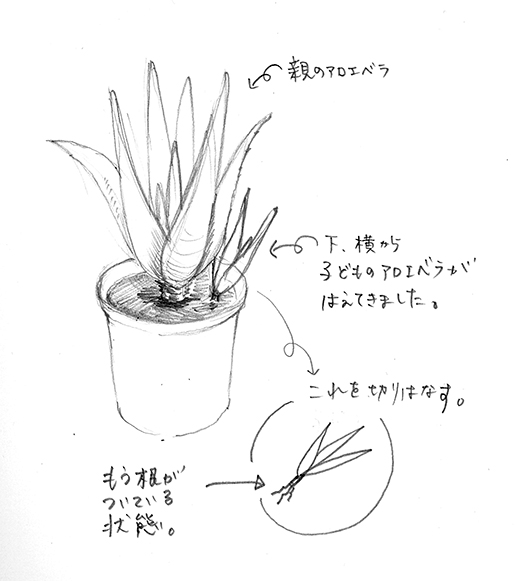 親のアロエベラ
下、横から
子どものアロエベラが
はえてきました。
これを切りはなす。
もう根が
ついている
状態。